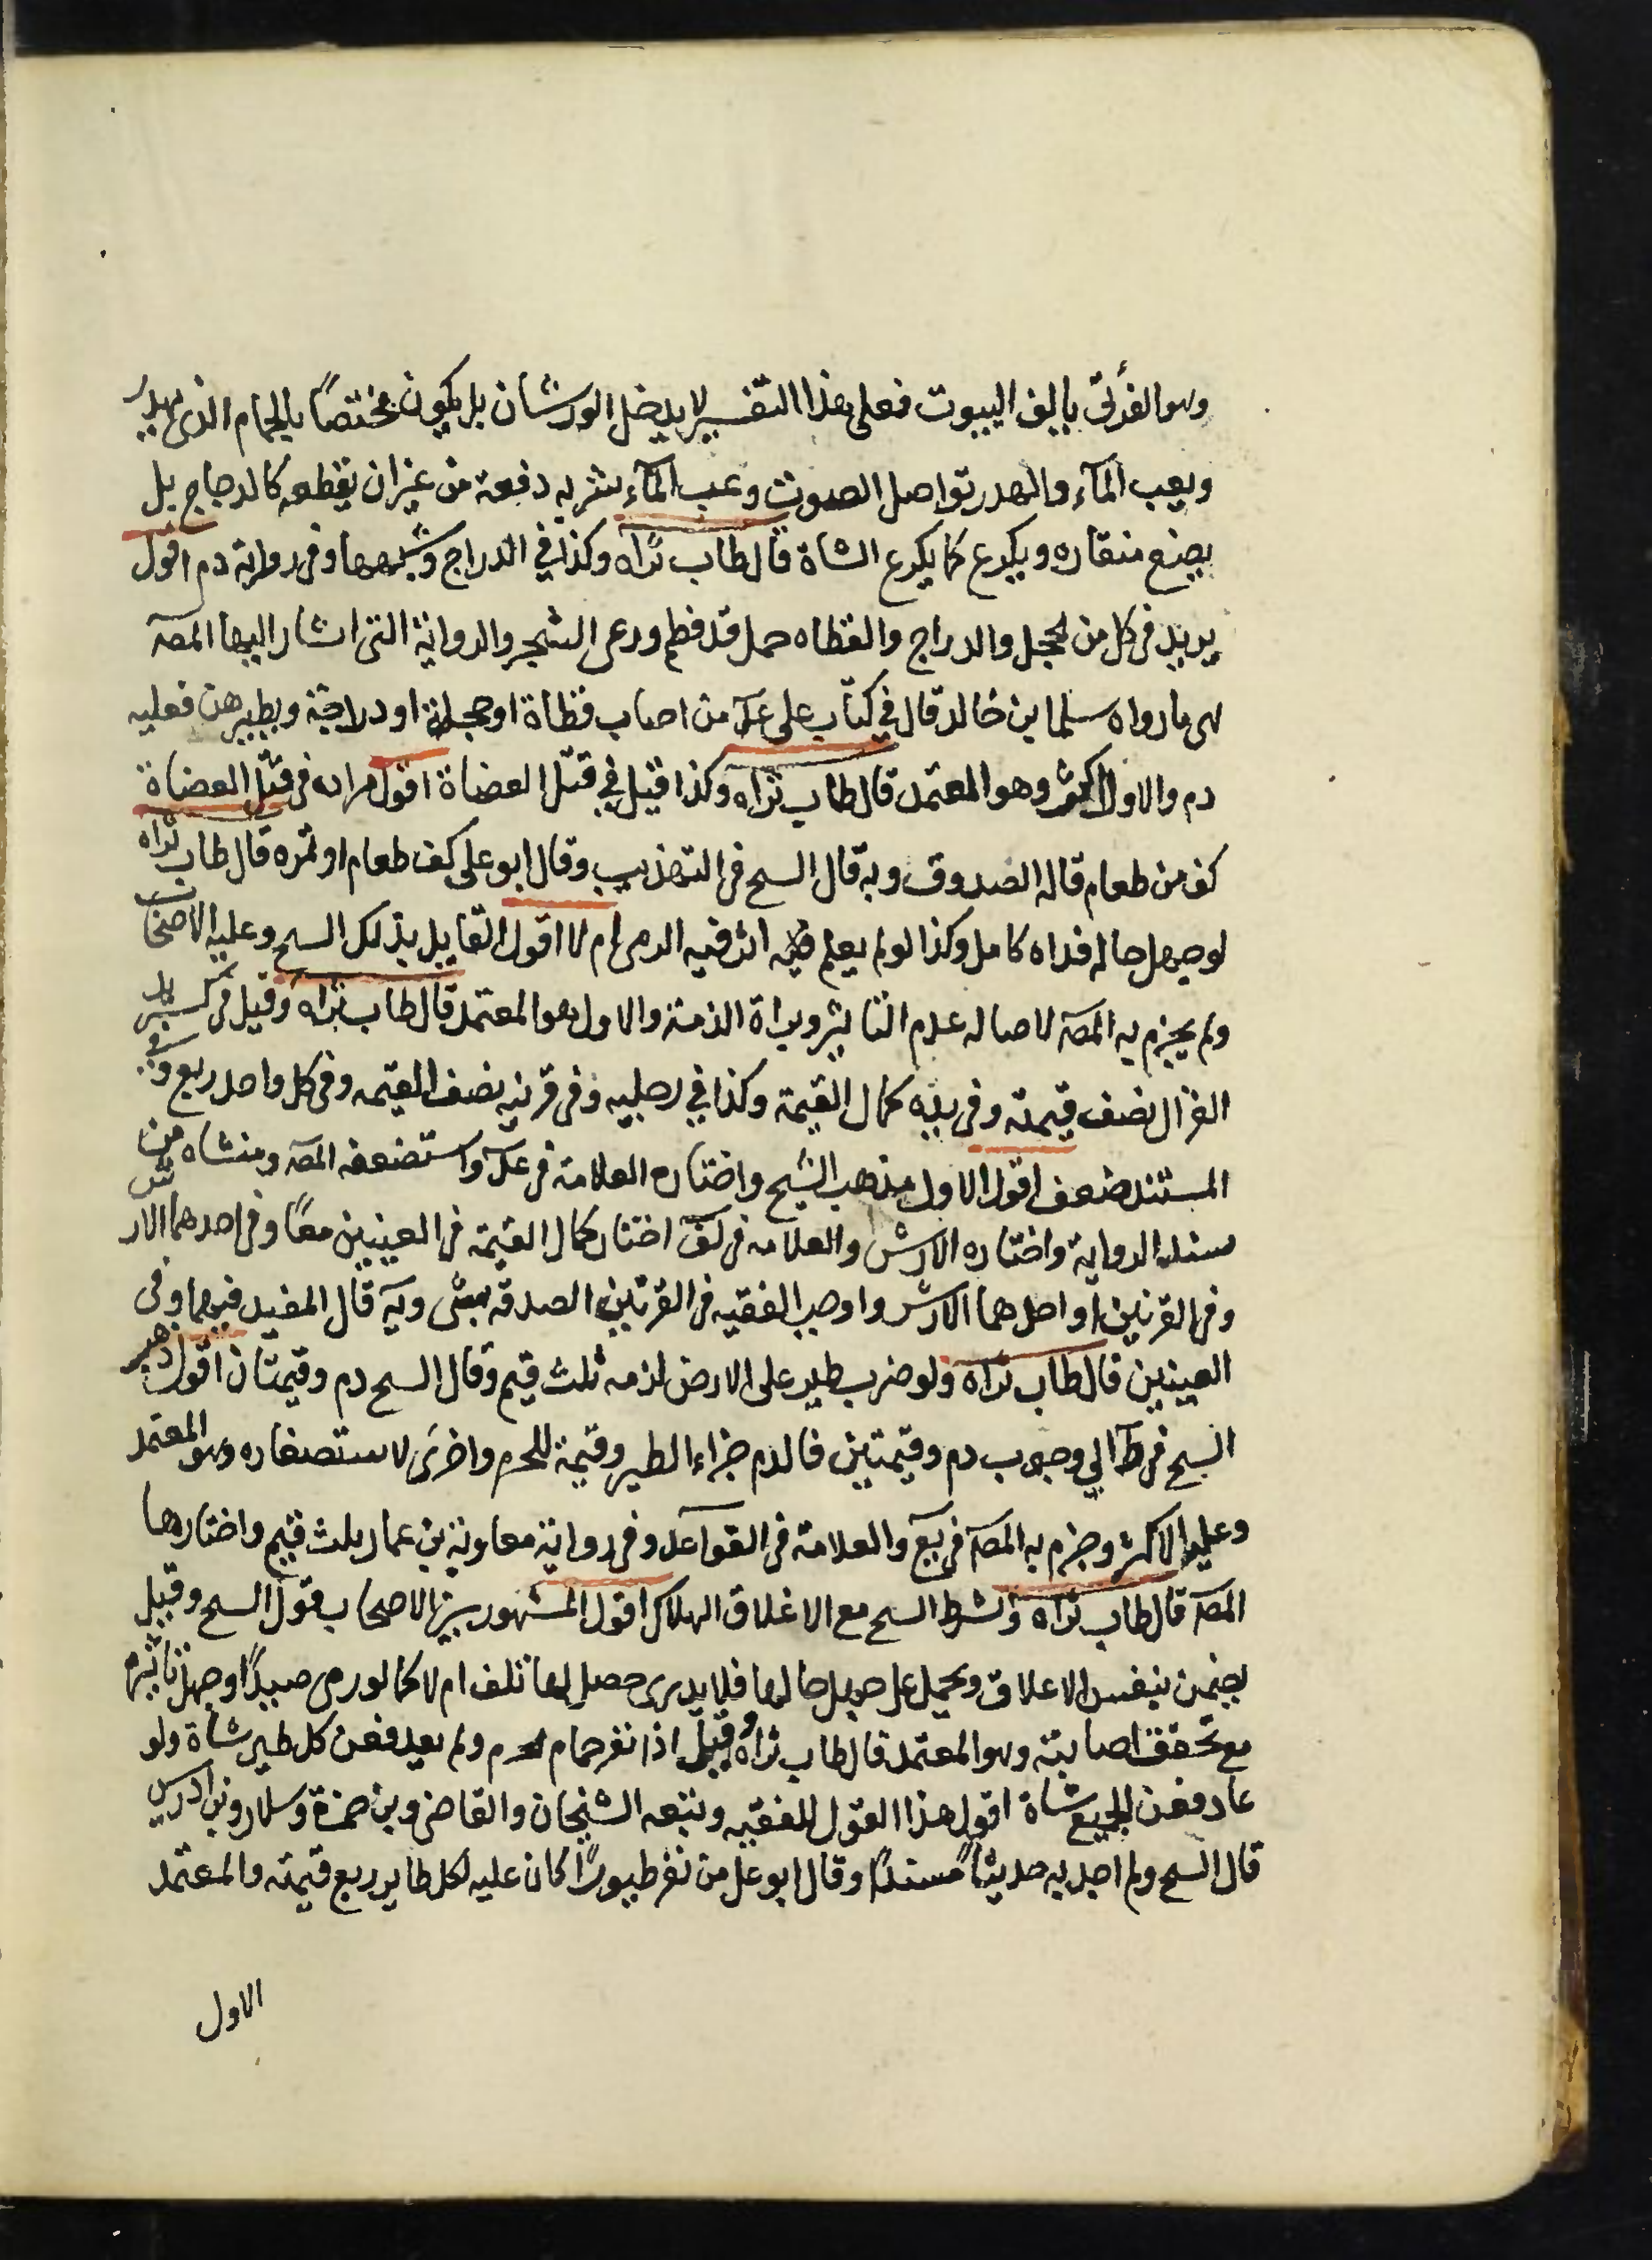 وهو الذي يالف البيوت فعلى هذا التفسير لا يدخل الورشان بل يكون مختصاً بالحمام الذي يهدر
ويعب المآء والهدر تواصل الصوت وعب المآء شربه دفعة من غير ان يقطعه كالدجاج بل
يضع منقاره ويكرع كما يكرع الشاة قال طاب ثراه وكذا في الدراج وشبهها وفي رواية دم اقول
يريد في كل من الحجل والدراج والقطاه حمل قد فطم ورعى الشجر والرواية التي اشار اليها المصه
هي ما رواه سليمان بن خالد قال في كتاب علي عليه من اصاب قطاة او حجلة او دراجة ونظيرهن فعليه
دم والاول اكثر وهو المعتمد قال طاب ثراه وكذا قيل في قتل العضاة اقول مراده في قتل العضاة
كف من طعام قاله الصدوق وبه قال الشيخ في التهذيب وقال ابو علي كف طعام او تمره قال طاب ثراه
لو جهل حاله فداه كامل وكذا لو لم يعلم اثر فيه الرمي ام لا اقول القايل بذلك الشيخ وعليه الاصحاب
ولم يجزم به المصه لاصاله عدم التاثير وبراة الذمة والاول هو المعتمد قال طاب ثراه وقيل في كسر يد
الغزال نصف قيمته وفي يديه كمال القيمة وكذا في رجليه وفي قرنيه نصف القيمه وفي كل واحد ربع وفي
المستند ضعف اقول الاول مذهب الشيخ واختاره العلامة في عد واستضعفه المصه ومنشاه من
سند الرواية واختاره الارش والعلامه في لف اختار كمال القيمة في العينين معاً وفي احدهما الارش
وفي القرنين او احدهما الارش واوجب الفقيه في القرنين الصدقه بشى وبه قال المفيد فيهما وفي
العينين قال طاب ثراه ولو ضرب بطير على الارض لزمه ثلث قيم وقال الشيخ دم وقيمتان اقول ذهب
الشيخ في ط الي وجوب دم وقيمتين فالدم جزاء الطير وقيمة للحرم واخرى لاستصغاره وهو المعتمد
وعليه الاكثر وجزم به المصه في يع والعلامة في القواعد وفي رواية معاوية بن عمار ثلث قيم واختارها
المصه قال طاب ثراه وشرط الشيخ مع الاغلاق الهلاك اقول المشهور بين الاصحاب قول الشيخ وقيل
يضمن بنفس الاغلاق ويحمل على جهل حالها فلا يدري حصل لها تلف ام لا كما لو رمى صيداً وجهل تاثيره
مع تحقق اصابته وهو المعتمد قال طاب ثراه وقيل اذا نفر حمام الحرم ولم يعد فعن كل طير شاة ولو
عاد فعن الجميع شاة اقول هذا القول للفقيه وتبعه الشيخان والقاضي وبن حمزة وسلار وبن ادريس
قال الشيخ ولم اجد به حديثاً مسنداً وقال ابو علي من نفر طيوراً كان عليه لكل طاير ربع قيمته والمعتمد
الاول